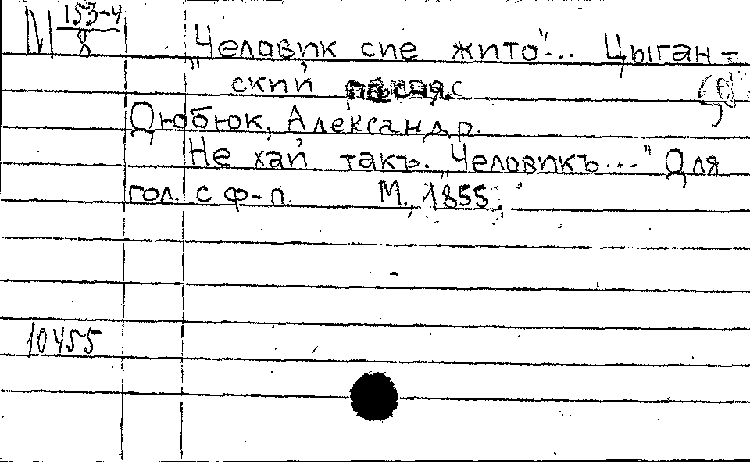 М 153-4/8
"Человик сие жито"... Цыган-
ский с
Дюбюк, Александр.
Не хай такъ. "Человикъ..." Для
гол. с ф-п. М., 1855.
10455